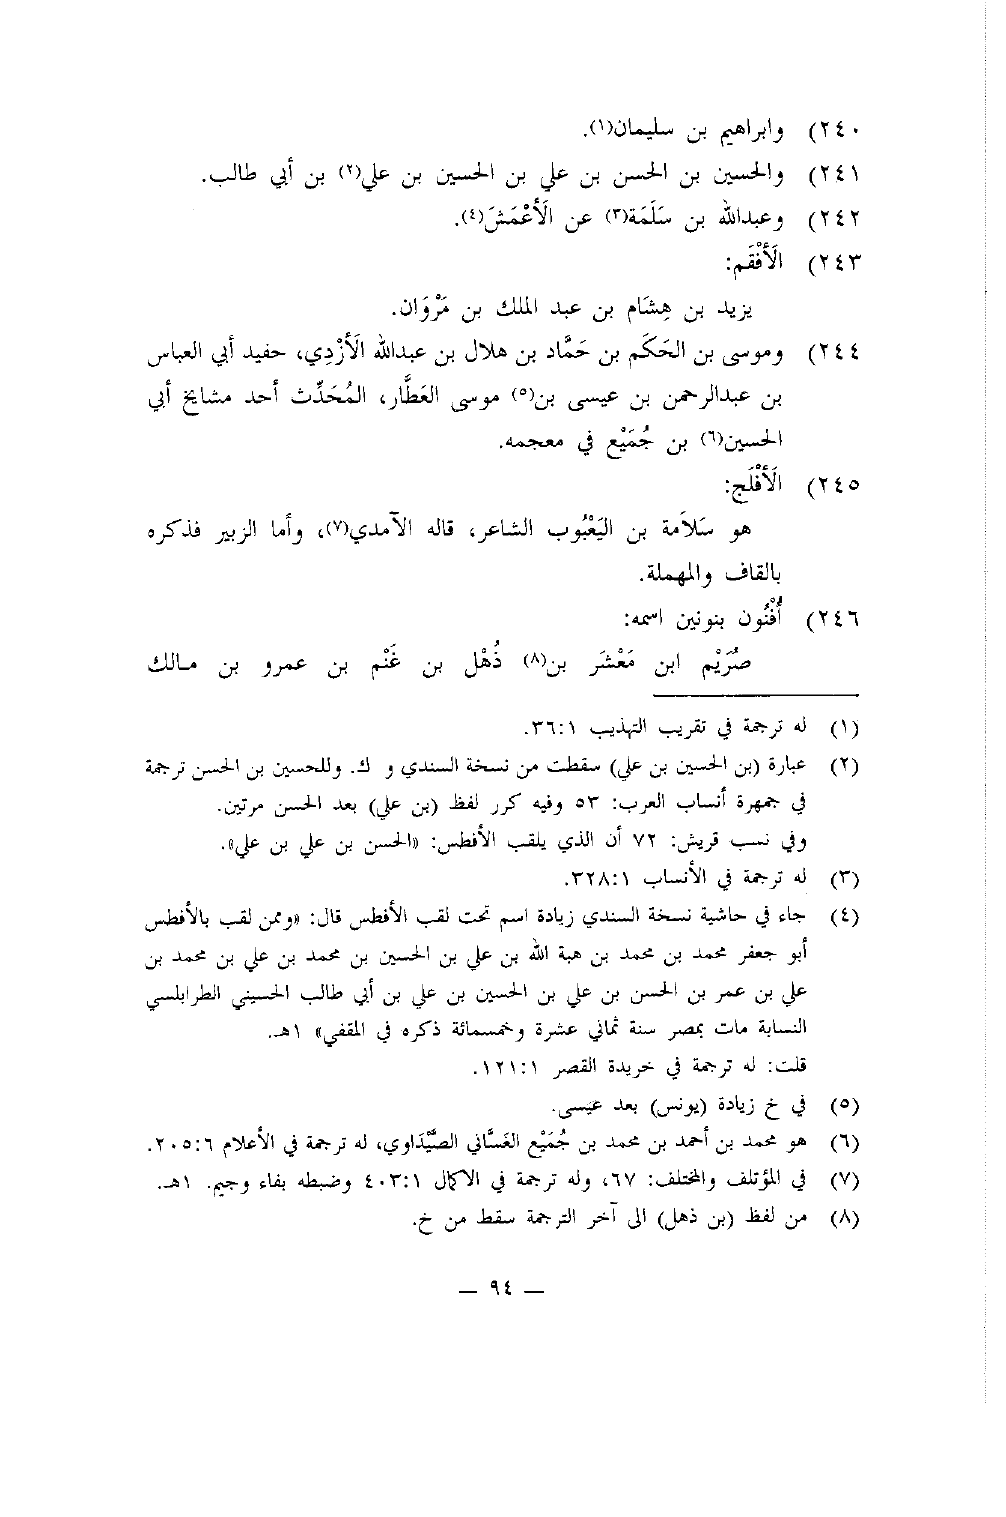 ٢٤٠) وابراهيم بن سليمان(١).
٢٤١) والحسين بن الحسن بن علي بن الحسين بن علي(٢) بن أبي طالب.
٢٤٢) وعبدالله بن سَلَمَة(٣) عن الَأعْمَشَ(٤).
٢٤٣) الَأفْقَم:
يزيد بن هِشَام بن عبد الملك بن مَرْوَان.
٢٤٤) وموسى بن الحَكَم بن حَمَّاد بن هلال بن عبدالله الَأزْدِي، حفيد أبي العباس
بن عبدالرحمن بن عيسى بن(٥) موسى العَطَّار، المُحَدِّث أحد مشايخ أبي
الحسين(٦) بن جُمَيْع في معجمه.
٢٤٥) الَأفْلَج:
هو سَلاَمة بن اليَعْبُوب الشاعر، قاله الآمدي(٧)، وأما الزبير فذكره
بالقاف والمهملة.
٢٤٦) أُفْنُون بنونين اسمه:
صُرَيْم ابن مَعْشَر بن(٨) ذُهْل بن غَنْم بن عمرو بن مالك
(١) له ترجمة في تقريب التهذيب ٣٦:١.
(٢) عبارة (بن الحسين بن علي) سقطت من نسخة السندي و ك. وللحسين بن الحسن ترجمة
في جمهرة أنساب العرب: ٥٣ وفيه كرر لفظ (بن علي) بعد الحسن مرتين.
وفي نسب قريش: ٧٢ أن الذي يلقب الأفطس: «الحسن بن علي بن علي».
(٣) له ترجمة في الأنساب ٣٢٨:١.
(٤) جاء في حاشية نسخة السندي زيادة اسم تحت لقب الأفطس قال: «وممن لقب بالأفطس
أبو جعفر محمد بن محمد بن هبة الله بن علي بن الحسين بن محمد بن علي بن محمد بن
علي بن عمر بن الحسن بن علي بن الحسين بن علي بن أبي طالب الحسيني الطرابلسي
النسابة مات بمصر سنة ثماني عشرة وخمسمائة ذكره في المقفي» ١هـ.
قلت: له ترجمة في خريدة القصر ١٢١:١.
(٥) في خ زيادة (يونس) بعد عيسى.
(٦) هو محمد بن أحمد بن محمد بن جُمَيْع الغَسَّاني الصَّيْدَاوي، له ترجمة في الأعلام ٢٠٥:٦.
(٧) في المؤتلف والمختلف: ٦٧، وله ترجمة في الاكمال ٤٠٣:١ وضبطه بفاء وجيم. ١هـ.
(٨) من لفظ (بن ذهل) الى آخر الترجمة سقط من خ.
— ٩٤ —